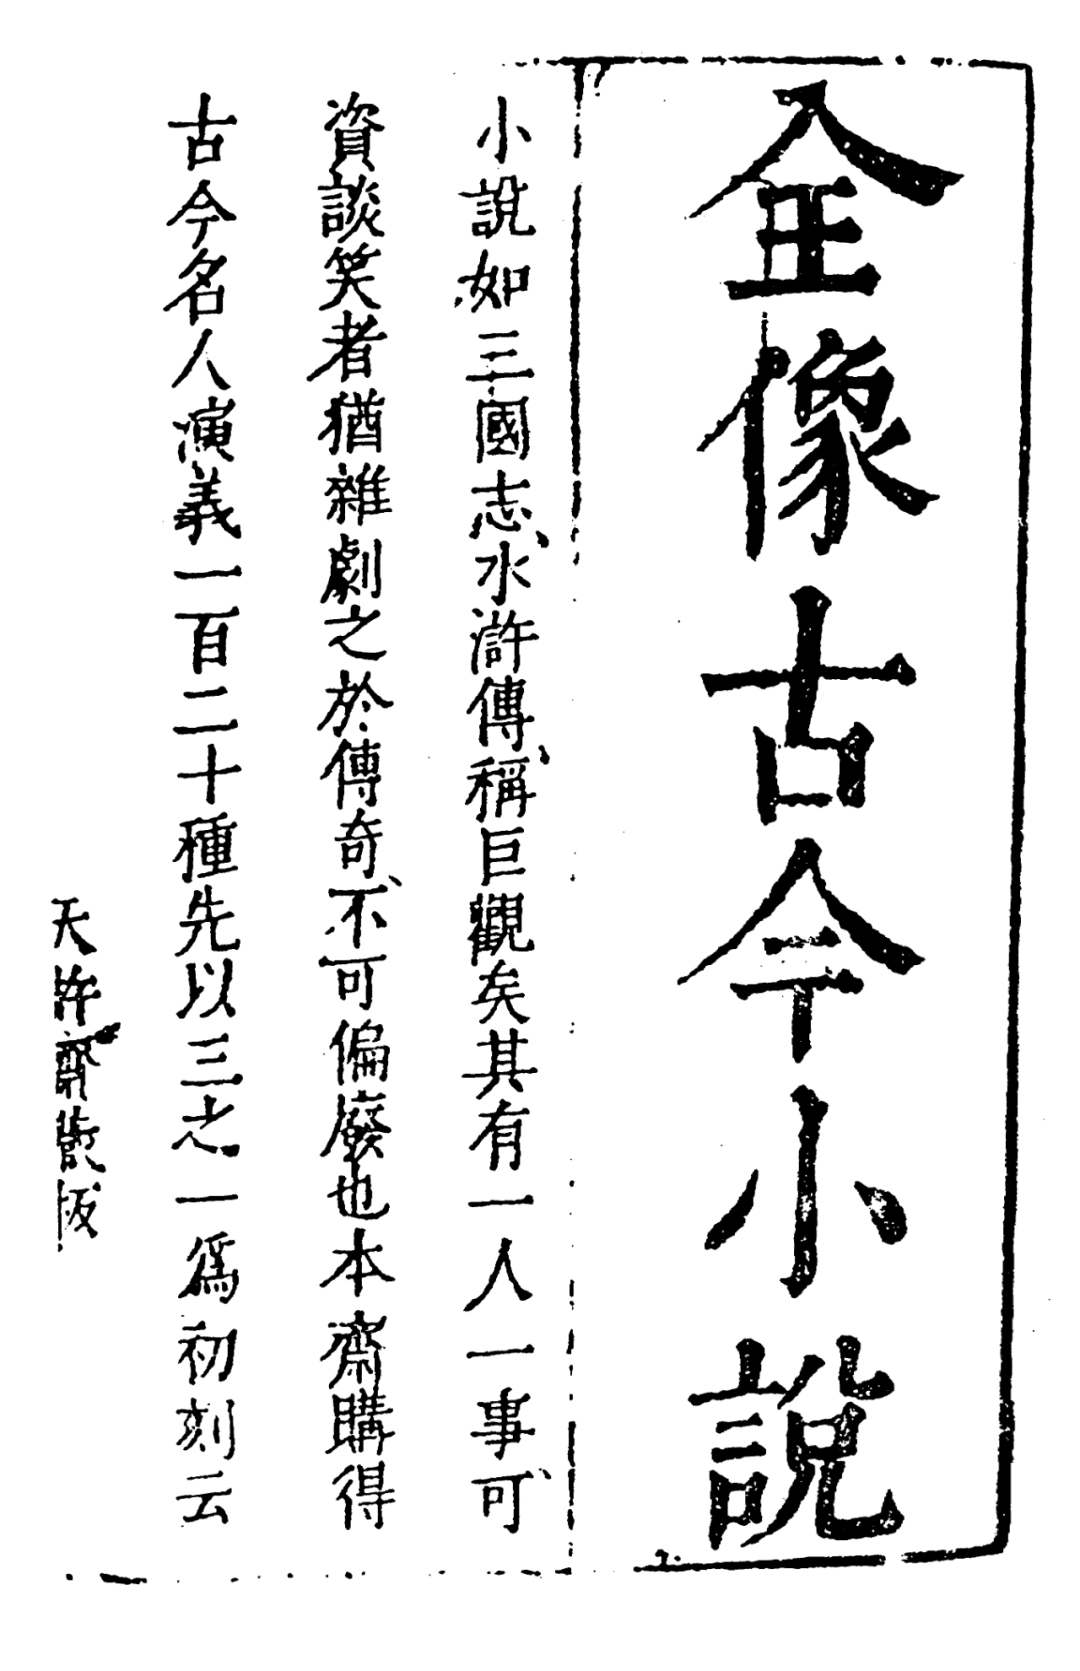 全像古今小說
小說如三國志、水滸傳、稱巨觀矣其有一人一事可、
資談笑者猶雜劇之於傳奇、不可偏廢也本齋購得
古今名人演義一百二十種先以三之一爲初刻云
天許齋藏板